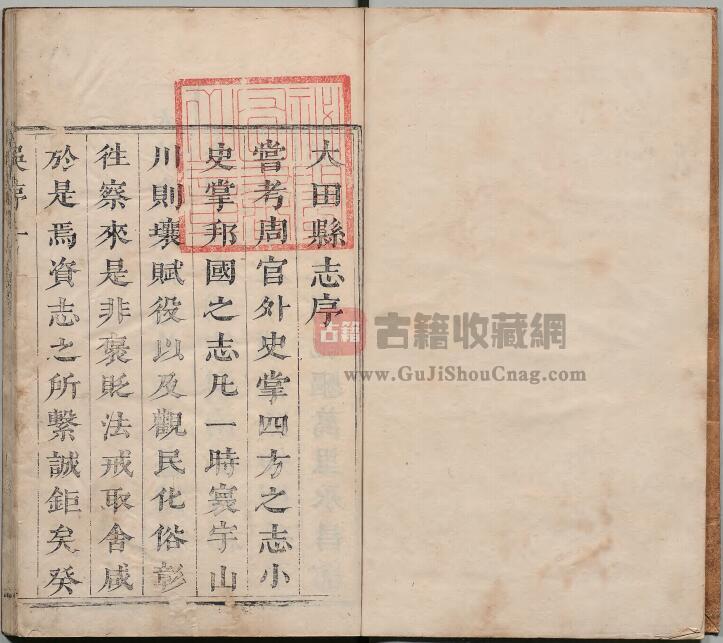 大田縣志序
嘗考周官外史掌四方之志小
史掌邦國之志凡一時寰宇山
川則壤賦役以及觀民化俗彰
徃察來是非褒貶法戒取舍咸
於是焉資志之所繫誠鉅矣癸
吳序 一
古籍
古籍收藏網
www.GuJiShouCnag.com